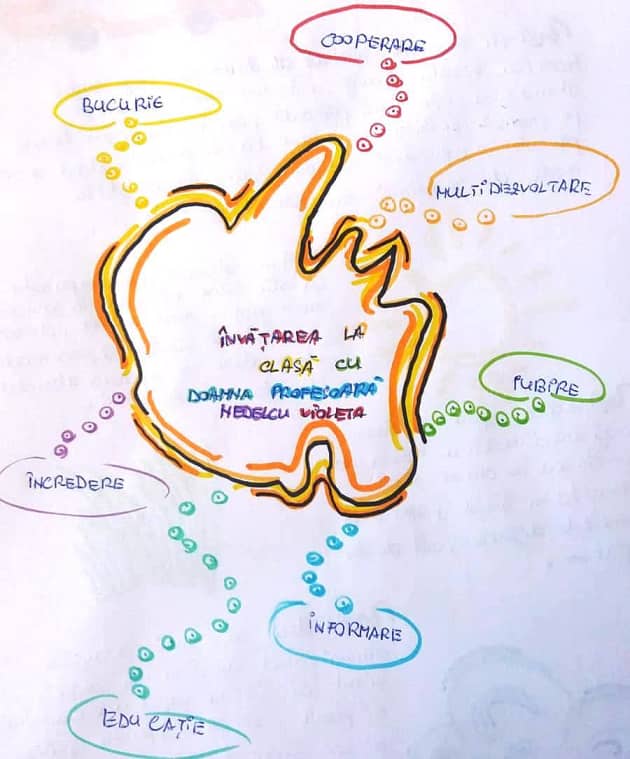 COOPERARE
BUCURIE
MULTIDEZVOLTARE
ÎNVĂȚAREA LA
CLASĂ CU
DOAMNA PROFESOARĂ
NEDELCU VIOLETA
IUBIRE
ÎNCREDERE
INFORMARE
EDUCAȚIE